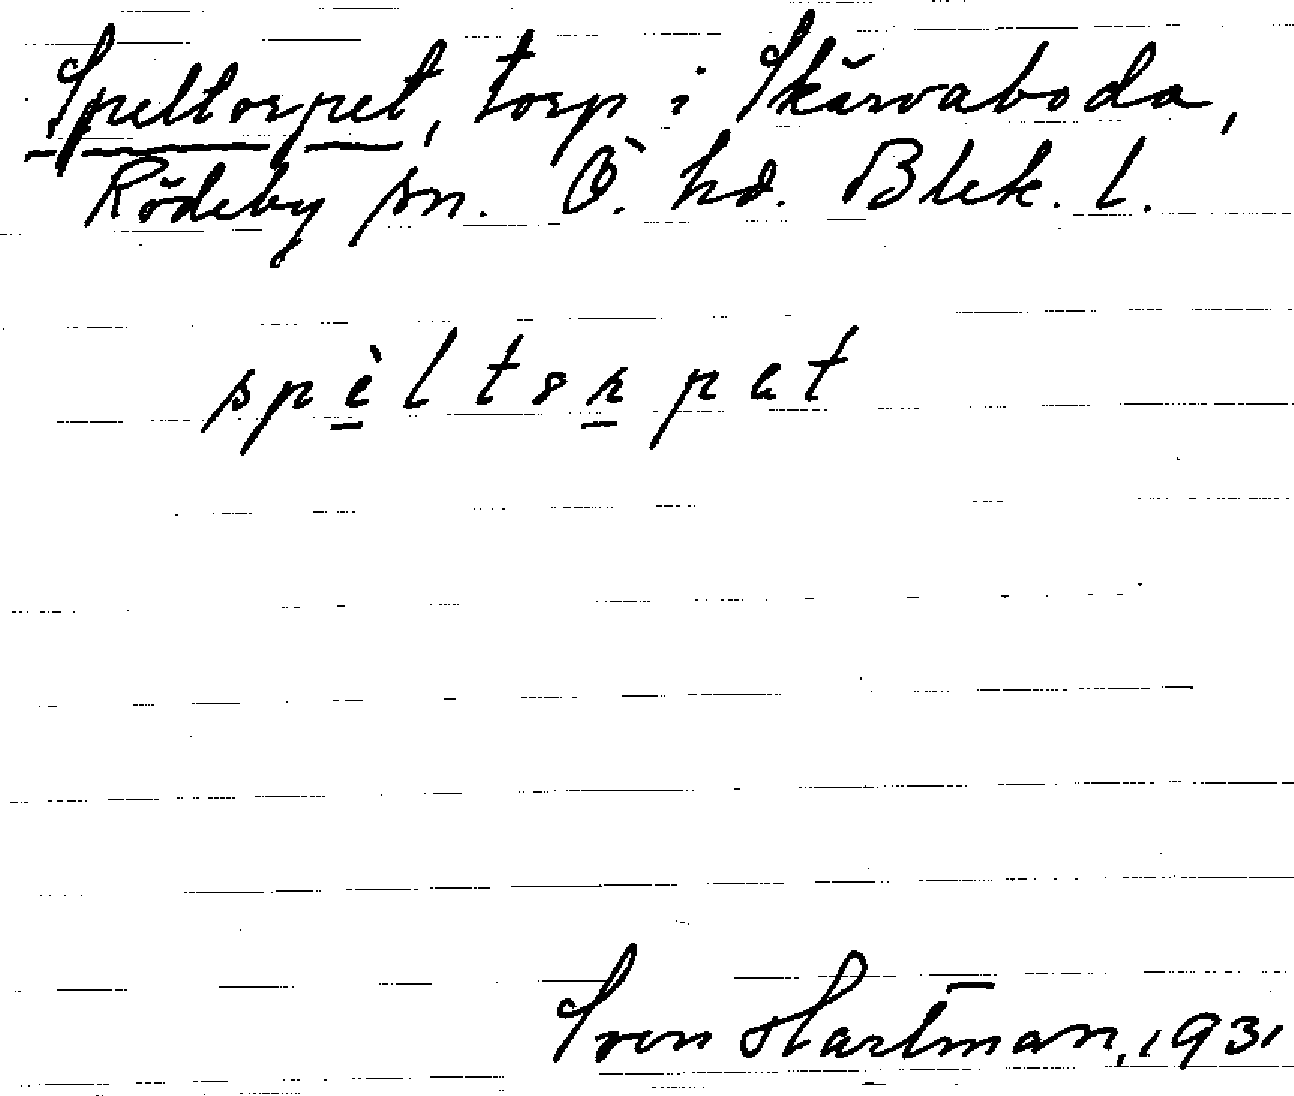 Speltorpet, torp i Skärvaboda,
Rödeby sn. Ö. hd. Blek. l.
spèltsrpet
Sven Hartman, 1931